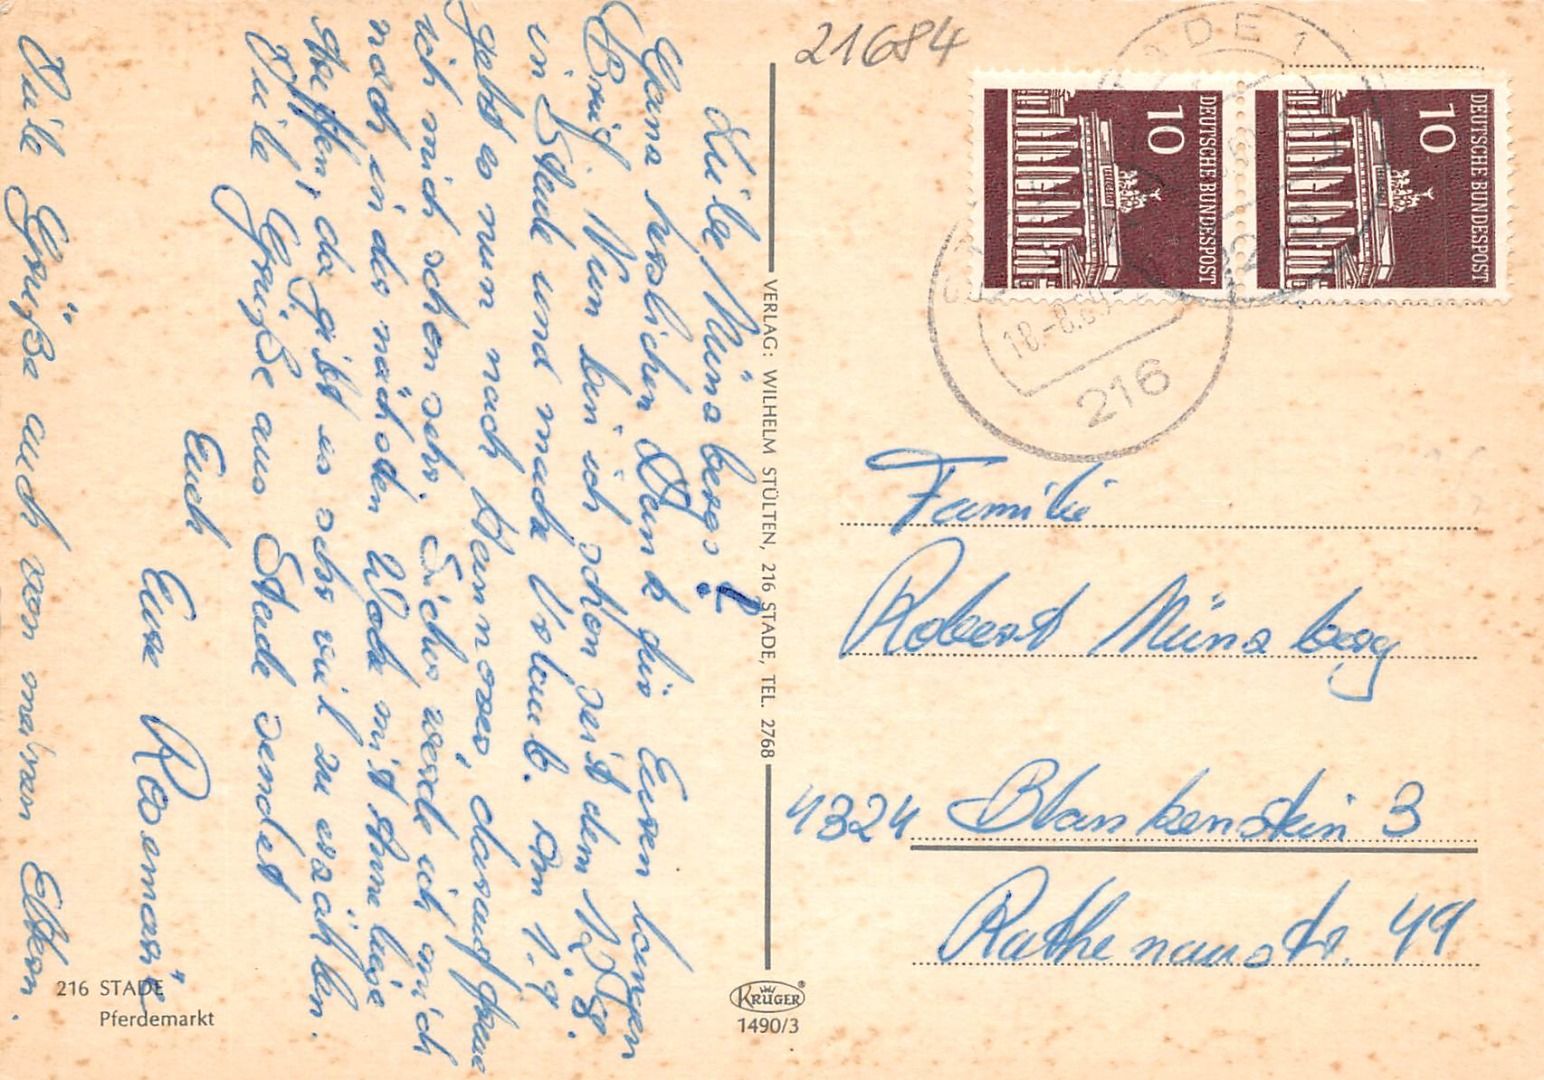 Liebe Münsbergs!
Ganz herzlichen Dank für Euren langen
Brief. Nun bin ich schon seit dem 12.8.
in Stade und mache Urlaub. Am 1.9.
geht es nun nach Hannover, darauf freue
ich mich schon sehr. Sicher werde ich mich
noch in der nächsten Woche mit Anneliese
treffen, da gibt es sehr viel zu erzählen.
Viele Grüße aus Stade sendet
Euch
Eure Rosemarie
Viele Grüße auch von meinen Eltern.
216 STADE
Pferdemarkt
VERLAG: WILHELM STÜLTEN, 216 STADE, TEL. 2768
KRÜGER
1490/3
21684
DEUTSCHE BUNDESPOST
10
DEUTSCHE BUNDESPOST
10
216
Familie
Robert Münsberg
4324 Blankenstein 3
Rathenaustr. 49